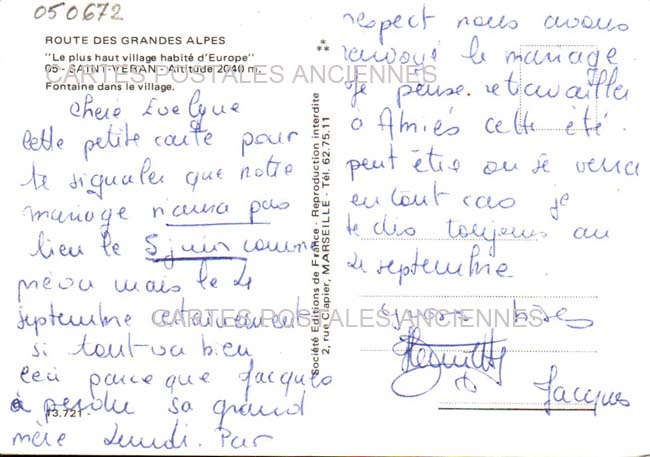 050672
ROUTE DES GRANDES ALPES
"Le plus haut village habité d'Europe"
05 - SAINT-VERAN - Altitude 2040 m.
Fontaine dans le village.
CARTES POSTALES ANCIENNES
Cheie Evelyne
Cette petite carte pour
te signaler que notre
mariage n'aura pas
lieu le 5 juin comme
prévu mais le 4
septembre
si tout va bien
Ceci parce que Jacques
à perdu sa grand
mère Lundi. Par
13.721
*
**
Société Editions de France - Reproduction interdite
2, rue Clapier, MARSEILLE - Tél. 62.75.11
respect nous avons
renvoyé le mariage
Je pense retravailler
a Amiés cette été.
peut être on se verra
en tout cas je
te dis toujours au
4 septembre.
CARTES POSTALES ANCIENNES
gross bises
Jacques